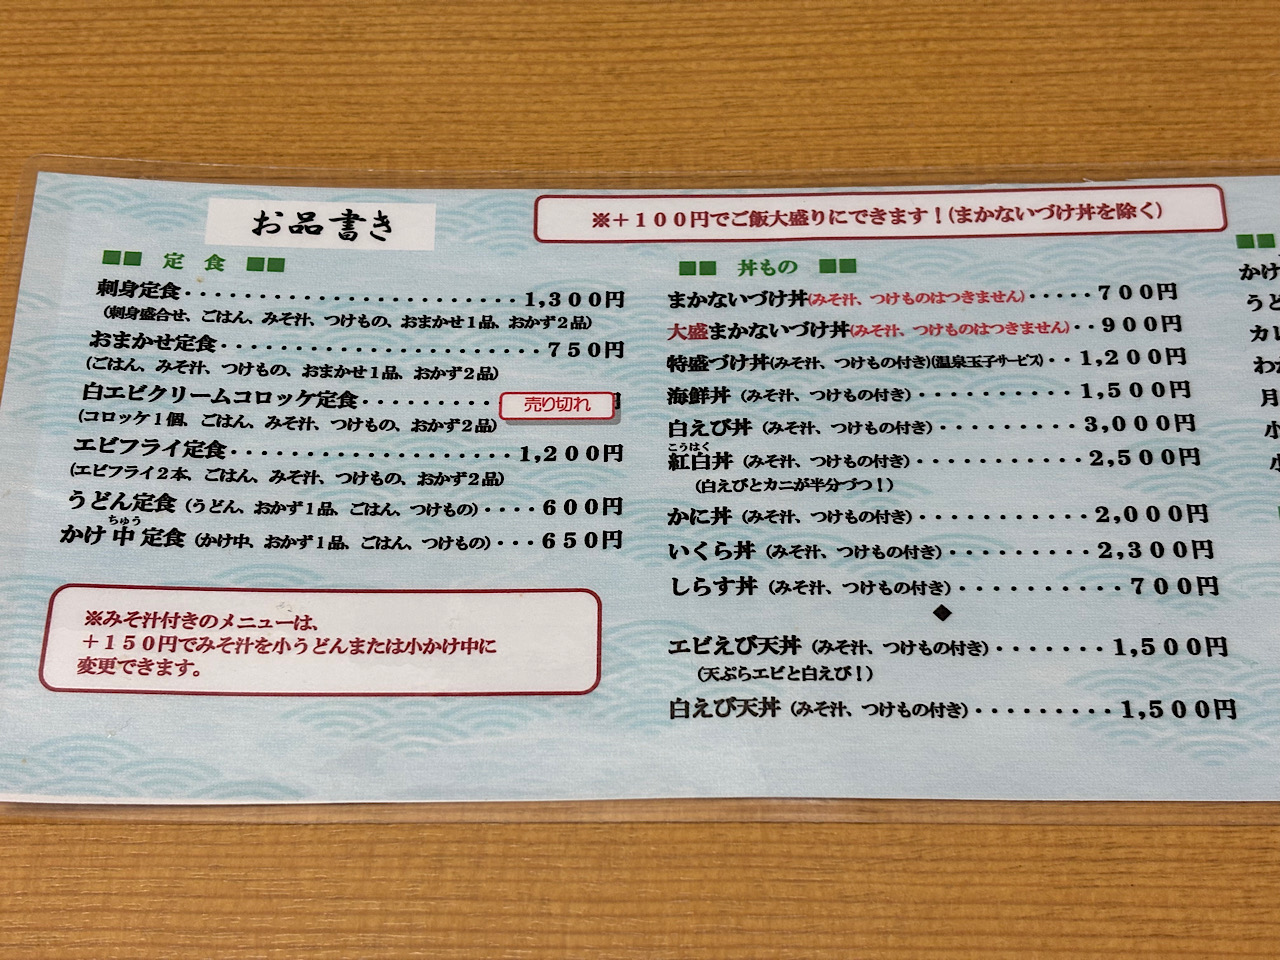 お品書き
※＋１００円でご飯大盛りにできます！(まかないづけ丼を除く)
■■ 定 食 ■■
刺身定食・・・・・・・・・・・・・・・・・・・・・・・・1,３００円
(刺身盛合せ、ごはん、みそ汁、つけもの、おまかせ１品、おかず２品)
おまかせ定食・・・・・・・・・・・・・・・・・・・・・・・７５０円
(ごはん、みそ汁、つけもの、おまかせ１品、おかず２品)
白エビクリームコロッケ定食・・・・・・・・・・ 売り切れ
(コロッケ１個、ごはん、みそ汁、つけもの、おかず２品)
エビフライ定食・・・・・・・・・・・・・・・・・・・・1,２００円
(エビフライ２本、ごはん、みそ汁、つけもの、おかず２品)
うどん定食 (うどん、おかず１品、ごはん、つけもの)・・・・６００円
ちゅう
かけ 中 定食 (かけ中、おかず１品、ごはん、つけもの)・・・６５０円
※みそ汁付きのメニューは、
＋１５０円でみそ汁を小うどんまたは小かけ中に
変更できます。
■■ 丼もの ■■
まかないづけ丼(みそ汁、つけものはつきません)・・・・・７００円
大盛まかないづけ丼(みそ汁、つけものはつきません)・・９００円
特盛づけ丼(みそ汁、つけもの付き)(温泉玉子サービス)・・1,２００円
海鮮丼 (みそ汁、つけもの付き)・・・・・・・・・・・・1,５００円
白えび丼 (みそ汁、つけもの付き)・・・・・・・・・・3,０００円
こうはく
紅白丼 (みそ汁、つけもの付き)・・・・・・・・・・・・2,５００円
(白えびとカニが半分づつ！)
かに丼 (みそ汁、つけもの付き)・・・・・・・・・・・・2,０００円
いくら丼 (みそ汁、つけもの付き)・・・・・・・・・・2,３００円
しらす丼 (みそ汁、つけもの付き)・・・・・・・・・・・７００円
◆
エビえび天丼 (みそ汁、つけもの付き)・・・・・・・1,５００円
(天ぷらエビと白えび！)
白えび天丼 (みそ汁、つけもの付き)・・・・・・・・・1,５００円
■■
かけ
うど
カレ
わか
月
小
小